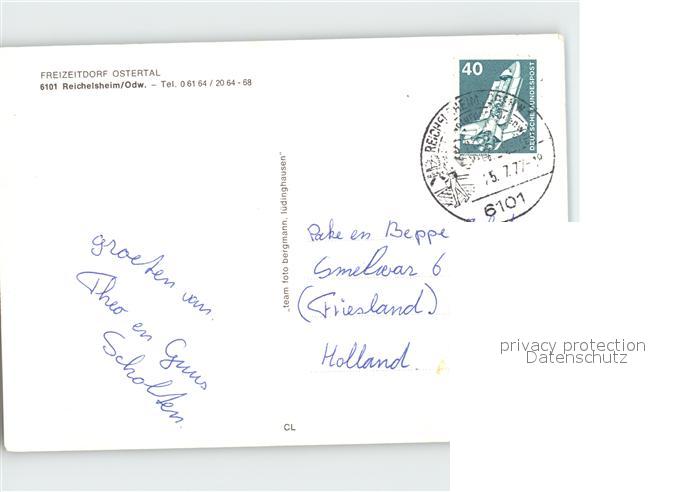 FREIZEITDORF OSTERTAL
6101 Reichelsheim/Odw. – Tel. 0 61 64 / 20 64 - 68
40
DEUTSCHE BUNDESPOST
REICHELSHEIM
15.7.77
6101
„team foto bergmann, lüdinghausen"
groeten van.
Theo en Guus
Scholten.
en Beppe
Smelwar 6
(Friesland.)
Holland.
privacy protection
Datenschutz
CL